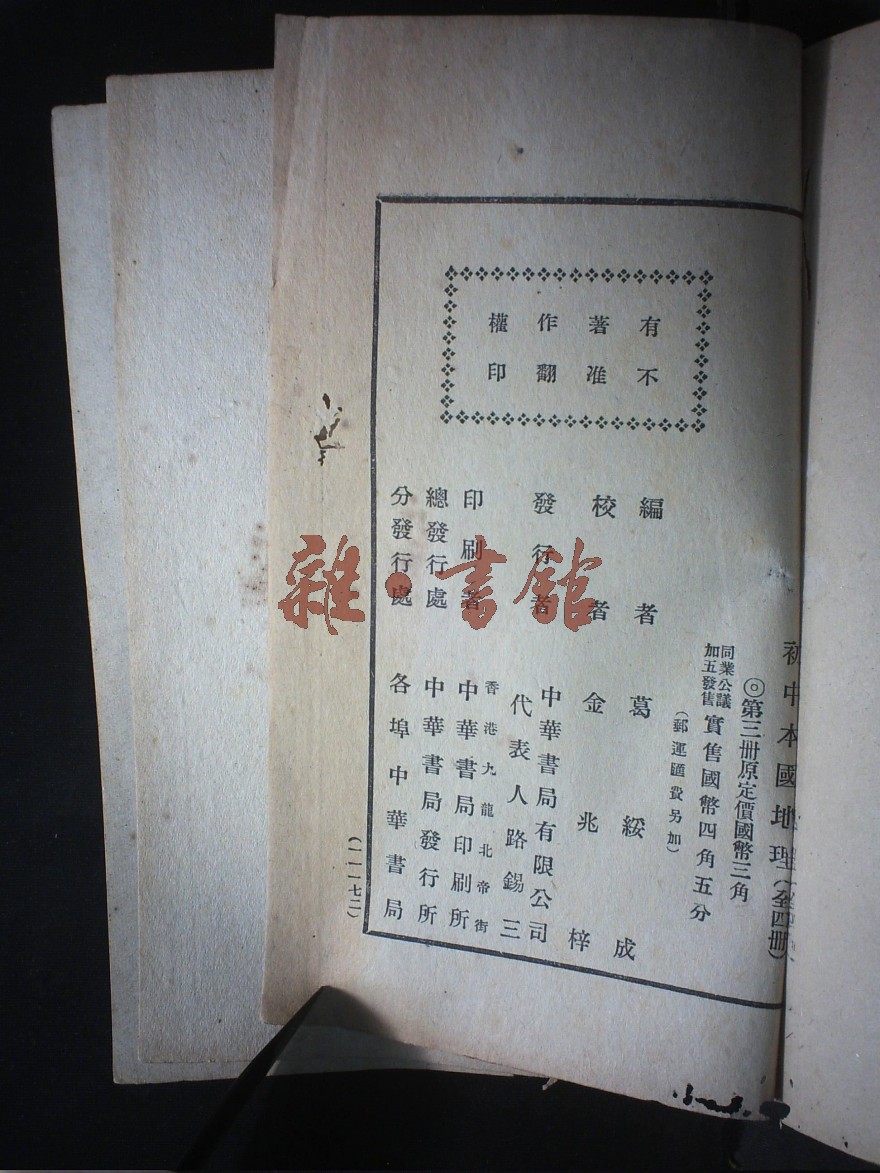 初中本國地理（全四冊）
◎第三冊原定價國幣三角
同業公議
加五發售
實售國幣四角五分
（郵運匯費另加）
有著作權
不准翻印
編者　葛綏成
校者　金兆梓
發行者　中華書局有限公司
代表人路錫三
香港九龍北帝街
印刷者　中華書局印刷所
總發行處　中華書局發行所
分發行處　各埠中華書局
（一一一七二）
雜·書館